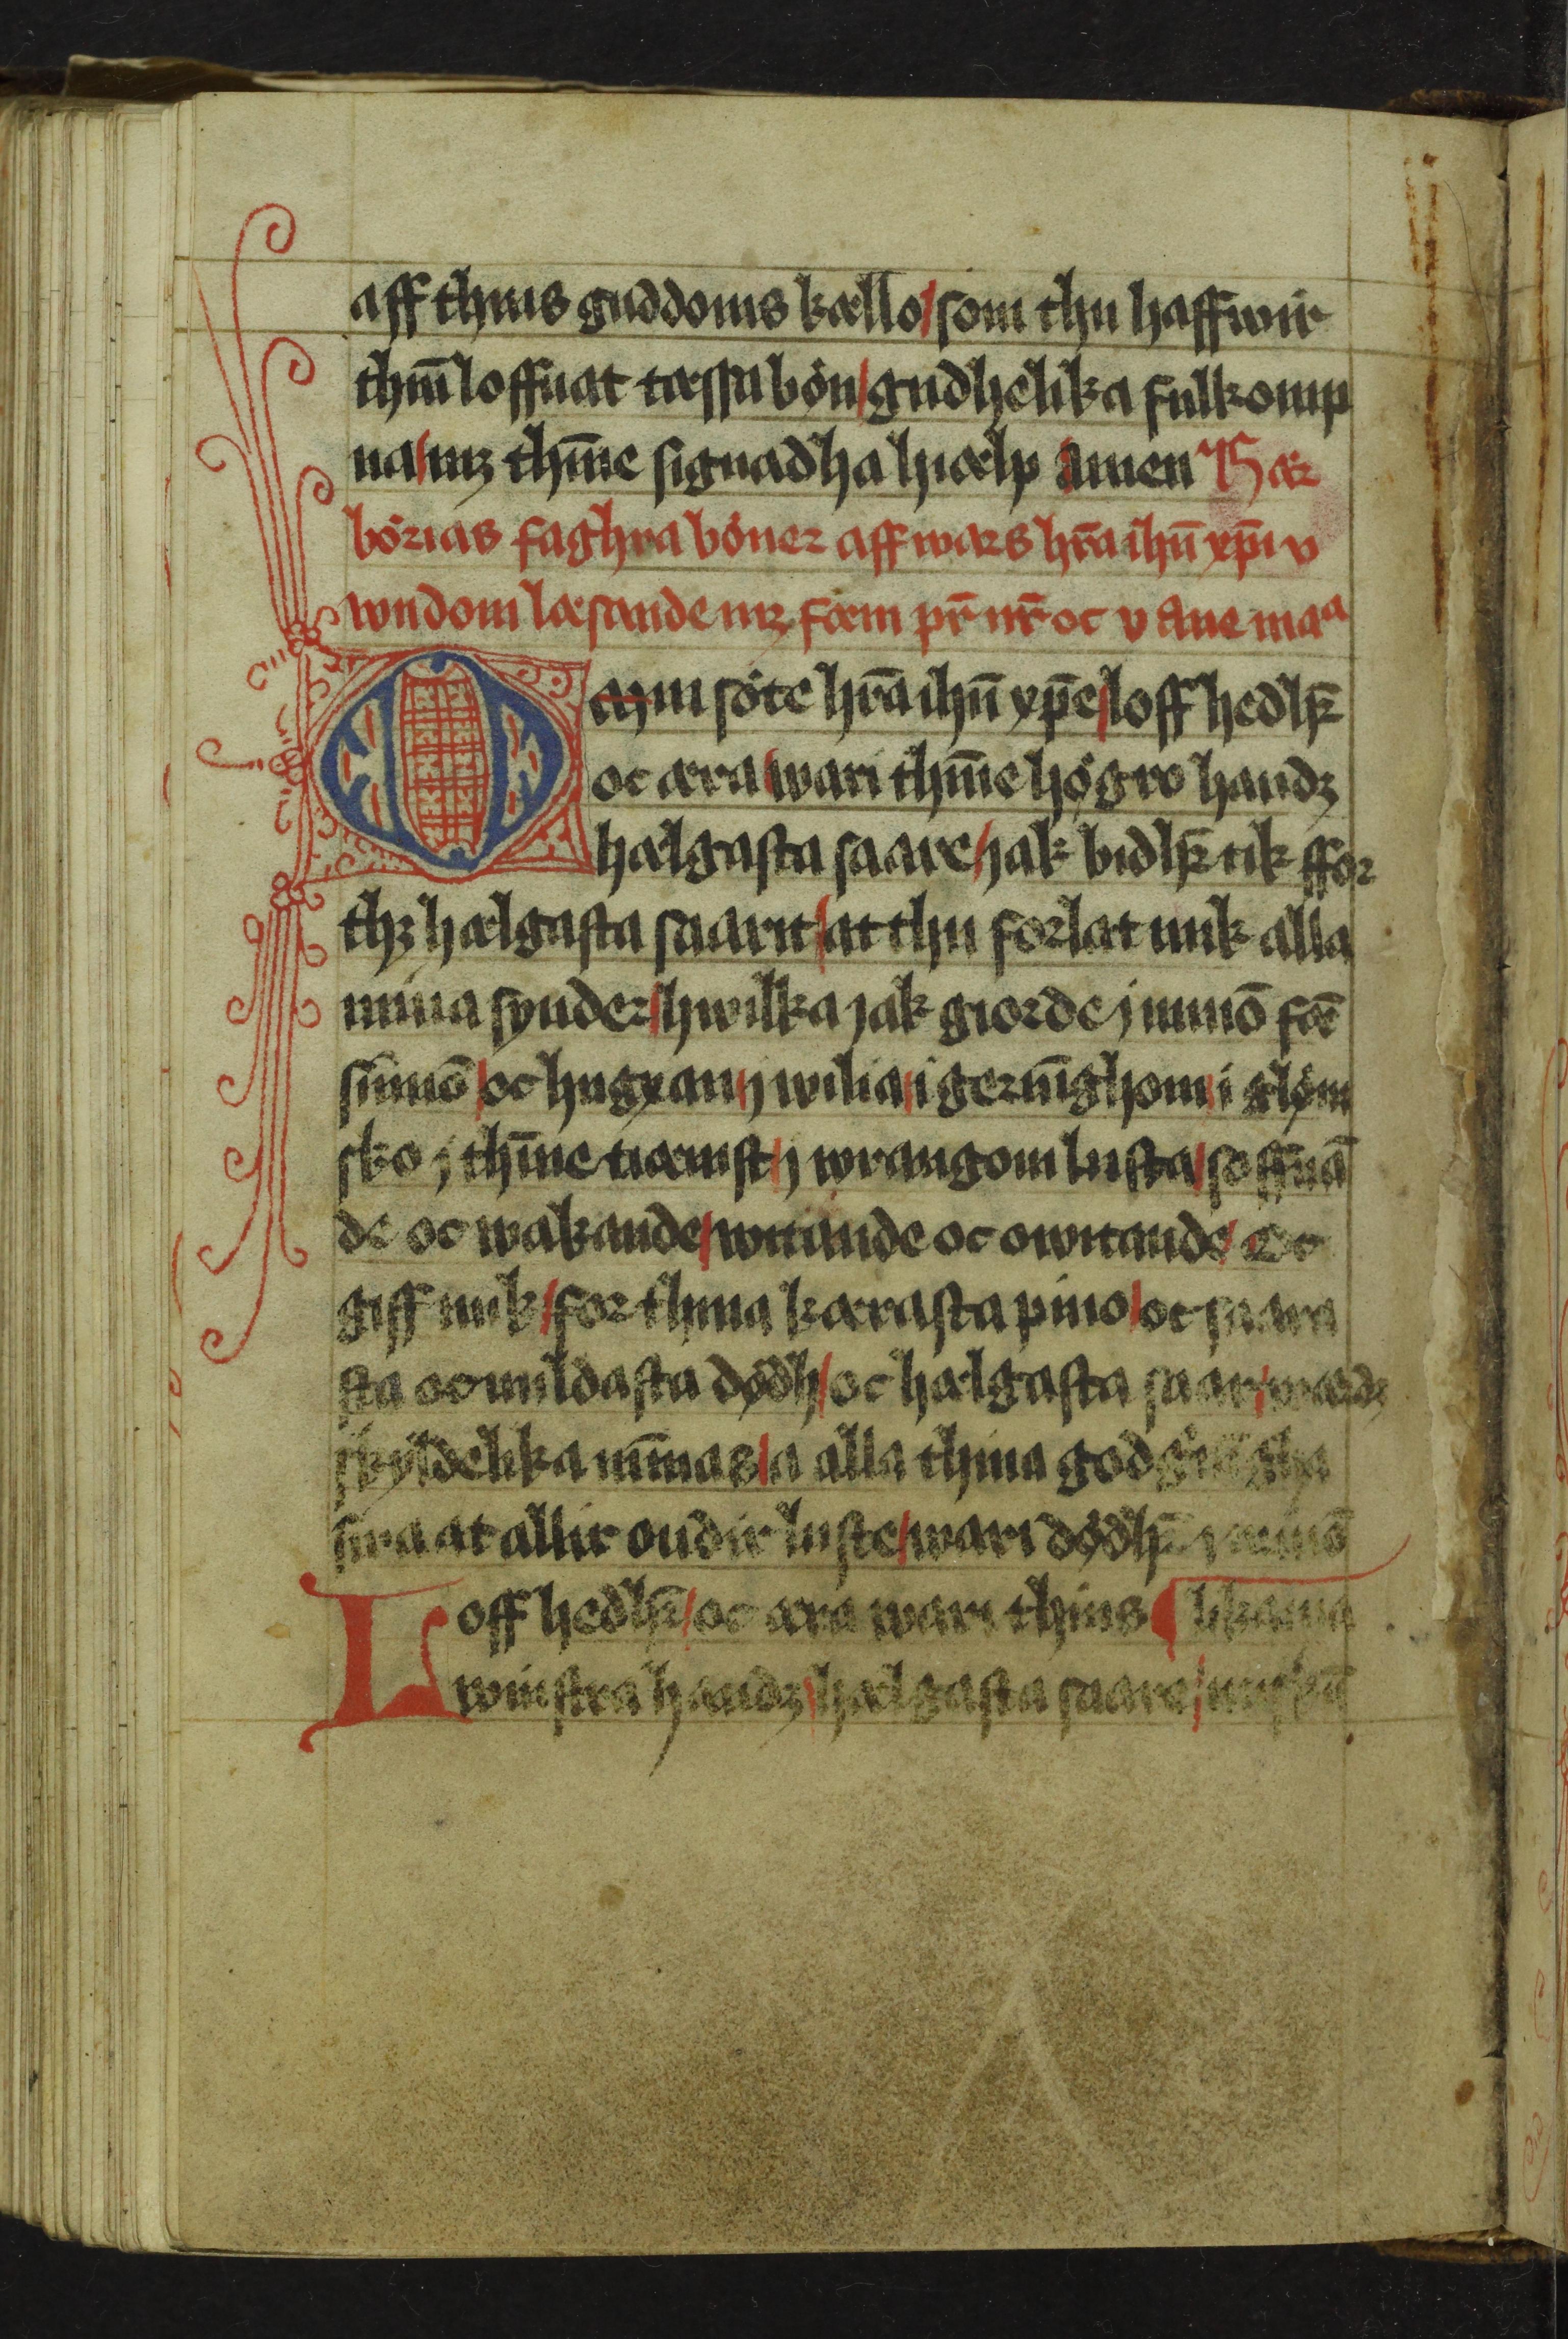 aff thins guddoms kællo / som thu haffwir
thm̄ loffuat tæssa bön / gudhelika fulkomp
na / mꝫ thīne signadha hiælp Amen Hær
börias faghra böner aff wars hr̄a ihū xp̄i v
wndom læsande mꝫ fæm pr̄ nr̄ oc v Aue maᵃ
O myn söte hr̄a ihū xp̄e / loff hedhr̄
oc æra / wari thīne högro handꝫ
hælgasta saare / jak bidhr̄ tik ffor
thꝫ hælgasta saarit / at thu forlat mik alla
mina synder / hwilka jak giorde j minō fǣ
sinnō / oc hugxan / j wilia / i gernīghom / i gløm
sko j thīne tiænist / j wrangom lusta / soffuā
de oc wakande / witande oc owitande / Oc
giff mik / for thina kærasta pino / oc saara
sta oc mildasta dödh / oc hælgasta saar / wærdh
skyldelika minnas / a alla thina godgerngha
swa at allir ondir luste / wari dödhr̄ j minō
Loff hedhr̄ / oc æra wari thins likama
winstra handꝫ / hælgasta saare /